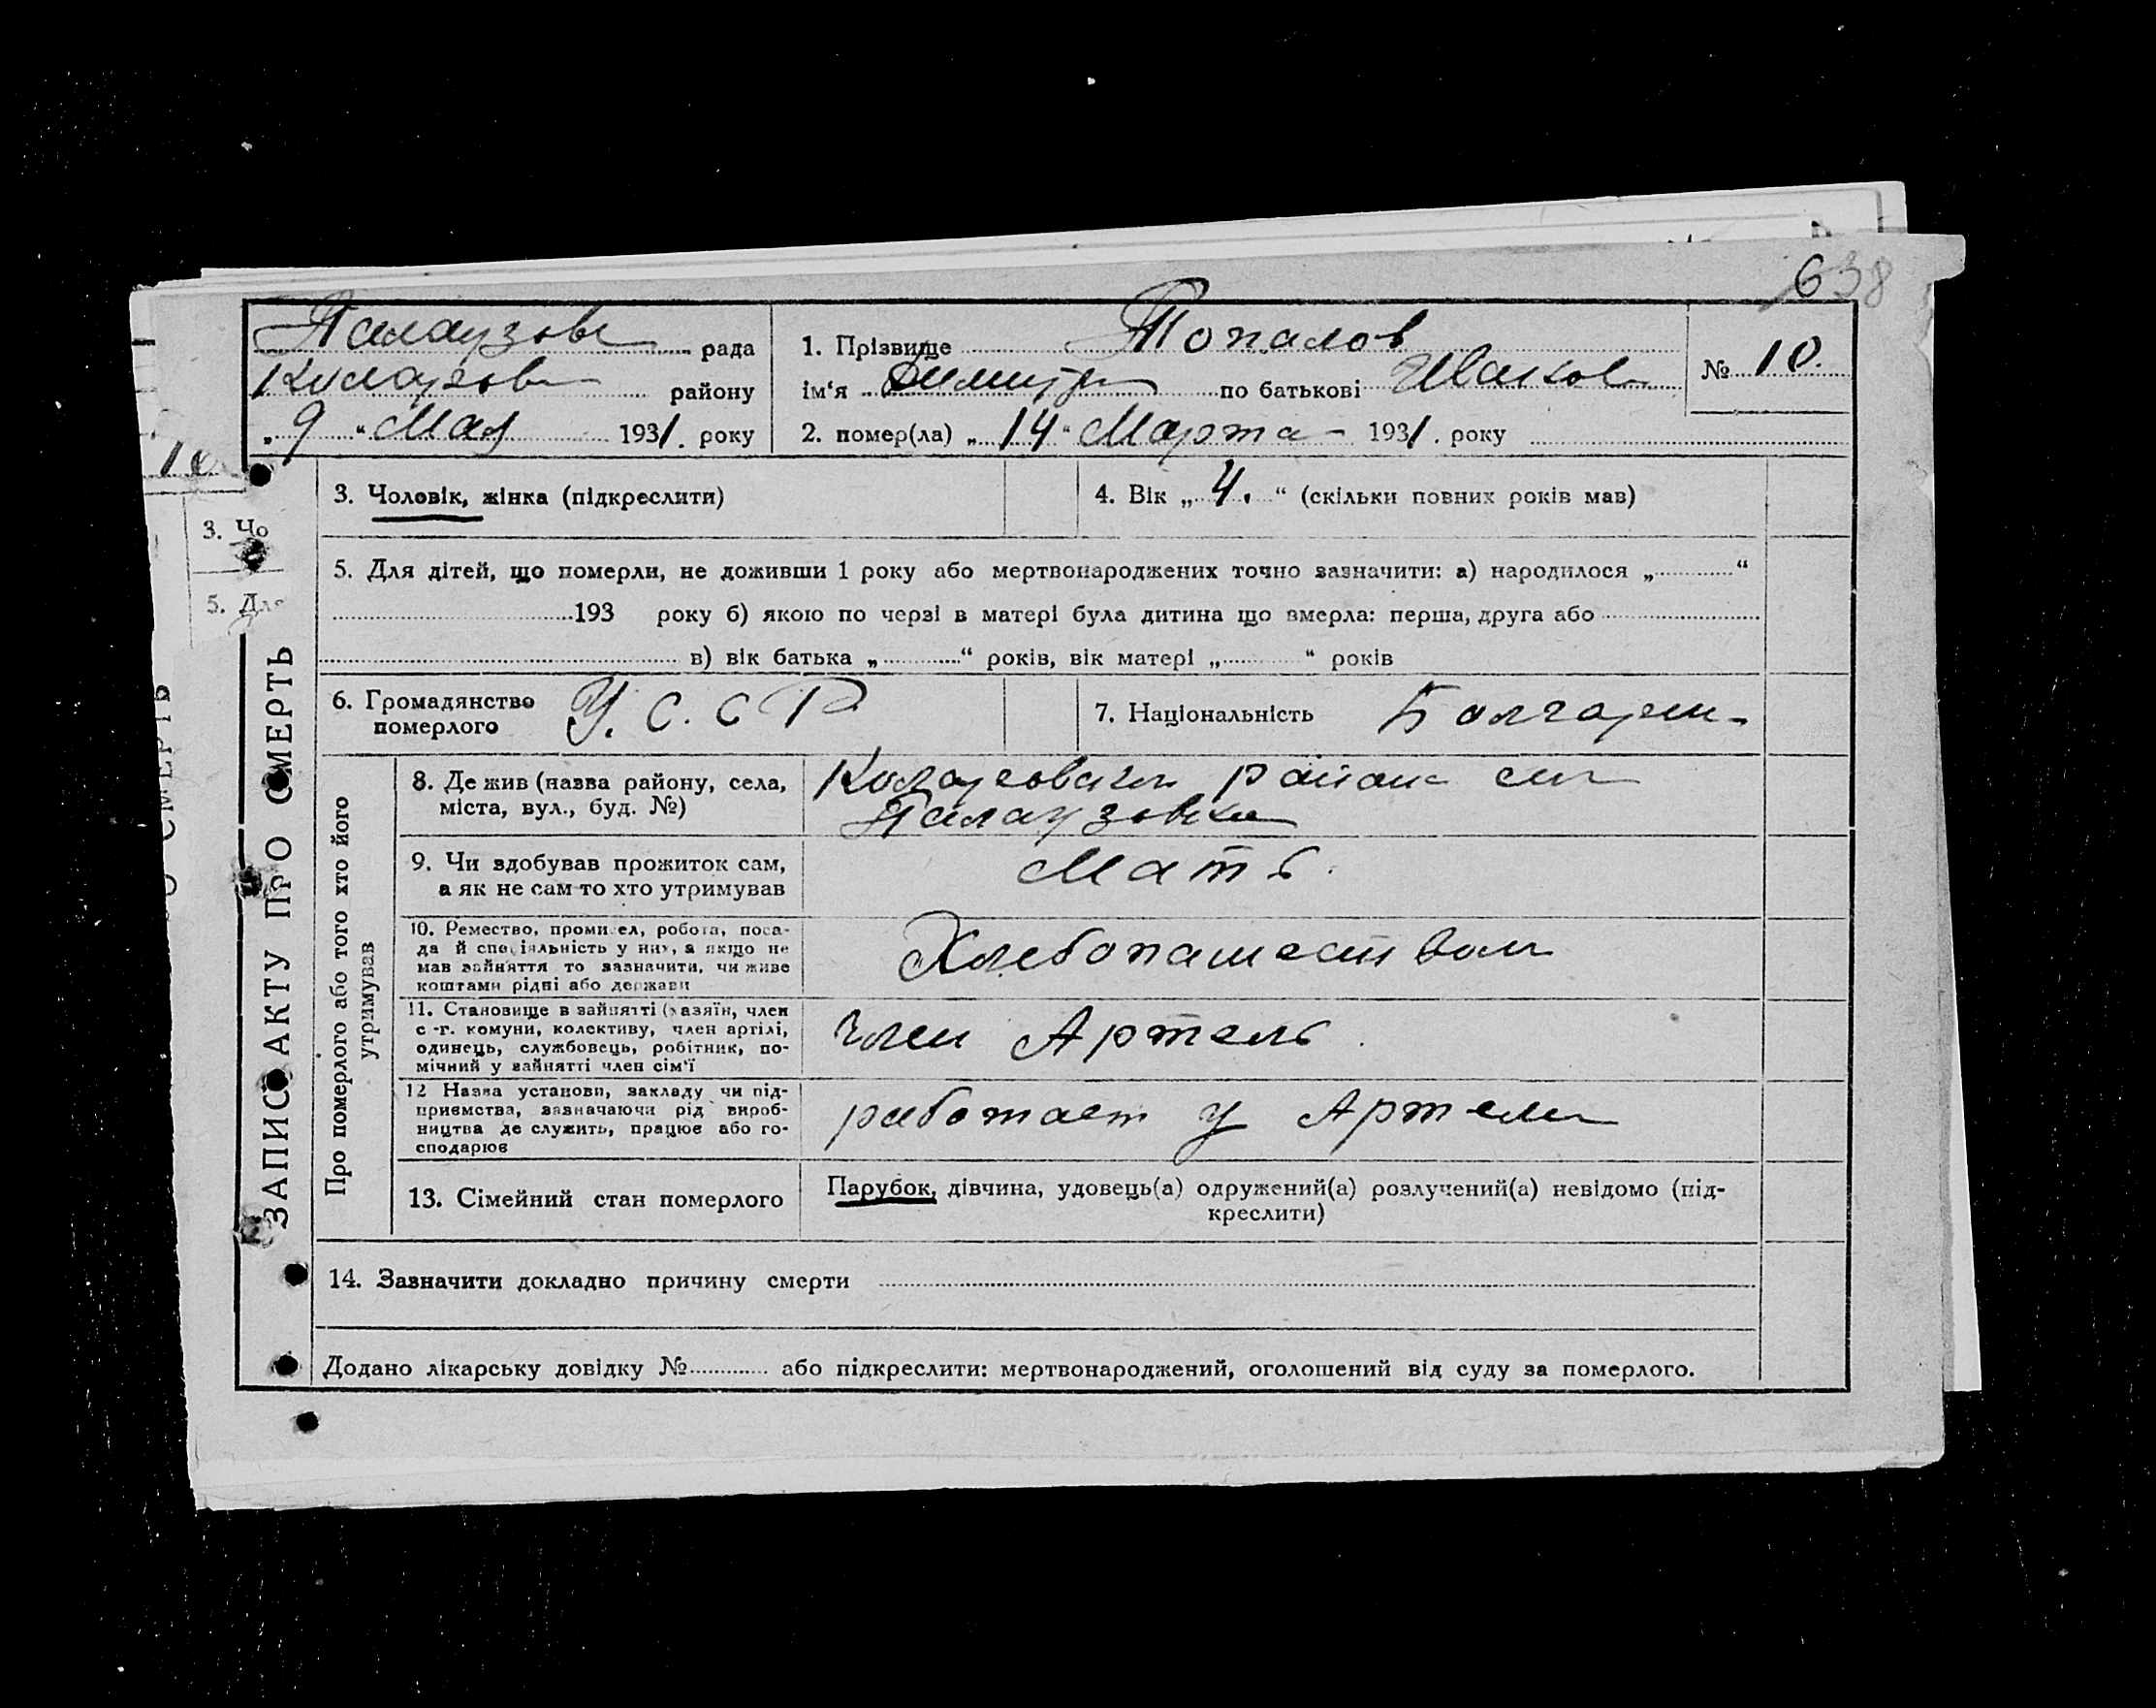 638
Палаузовс рада
Коларовс району
„ 9 “ Мая 1931. року
1. Прізвище Топалов
№ 10.
ім‘я Димитр по батькові Иванов
2. помер(ла) „ 14 “ Марта 1931. року
3. Чоловік, жінка (підкреслити)
4. Вік „ 4. “ (скільки повних років мав)
5. Для дітей, що померли, не доживши 1 року або мертвонароджених точно зазначити: а) народилося „ “
193 року б) якою по черзі в матері була дитина що вмерла: перша, друга або
в) вік батька „ “ років, вік матері „ “ років
6. Громадянство
померлого
У. С. С Р
7. Національність
Болгарин
8. Де жив (назва району, села,
міста, вул., буд. №)
района
Палаузовка
9. Чи здобував прожиток сам,
а як не сам-то хто утримував
Мать.
10. Ремество, промисел, робота, поса-
да й спеціяльність у них, а якщо не
мав зайняття то зазначити, чи живе
коштами рідні або держави
Хлебопашеством
11. Становище в зайнятті (хазяїн, член
с-г. комуни, колективу, член артілі,
одинець, службовець, робітник, по-
мічний у зайнятті член сім‘ї
Член Артель
12 Назва установи, закладу чи під-
приємства, зазначаючи рід вироб-
ництва де служить, працює або го-
сподарює
работает у Артели
13. Сімейний стан померлого
Парубок, дівчина, удовець(а) одружений(а) розлучений(а) невідомо (під-
креслити)
14. Зазначити докладно причину смерти
Додано лікарську довідку № або підкреслити: мертвонароджений, оголошений від суду за померлого.
ЗАПИС АКТУ ПРО СМЕРТЬ
Про померлого або того хто його
утримував
10
3. Чо
5. Для